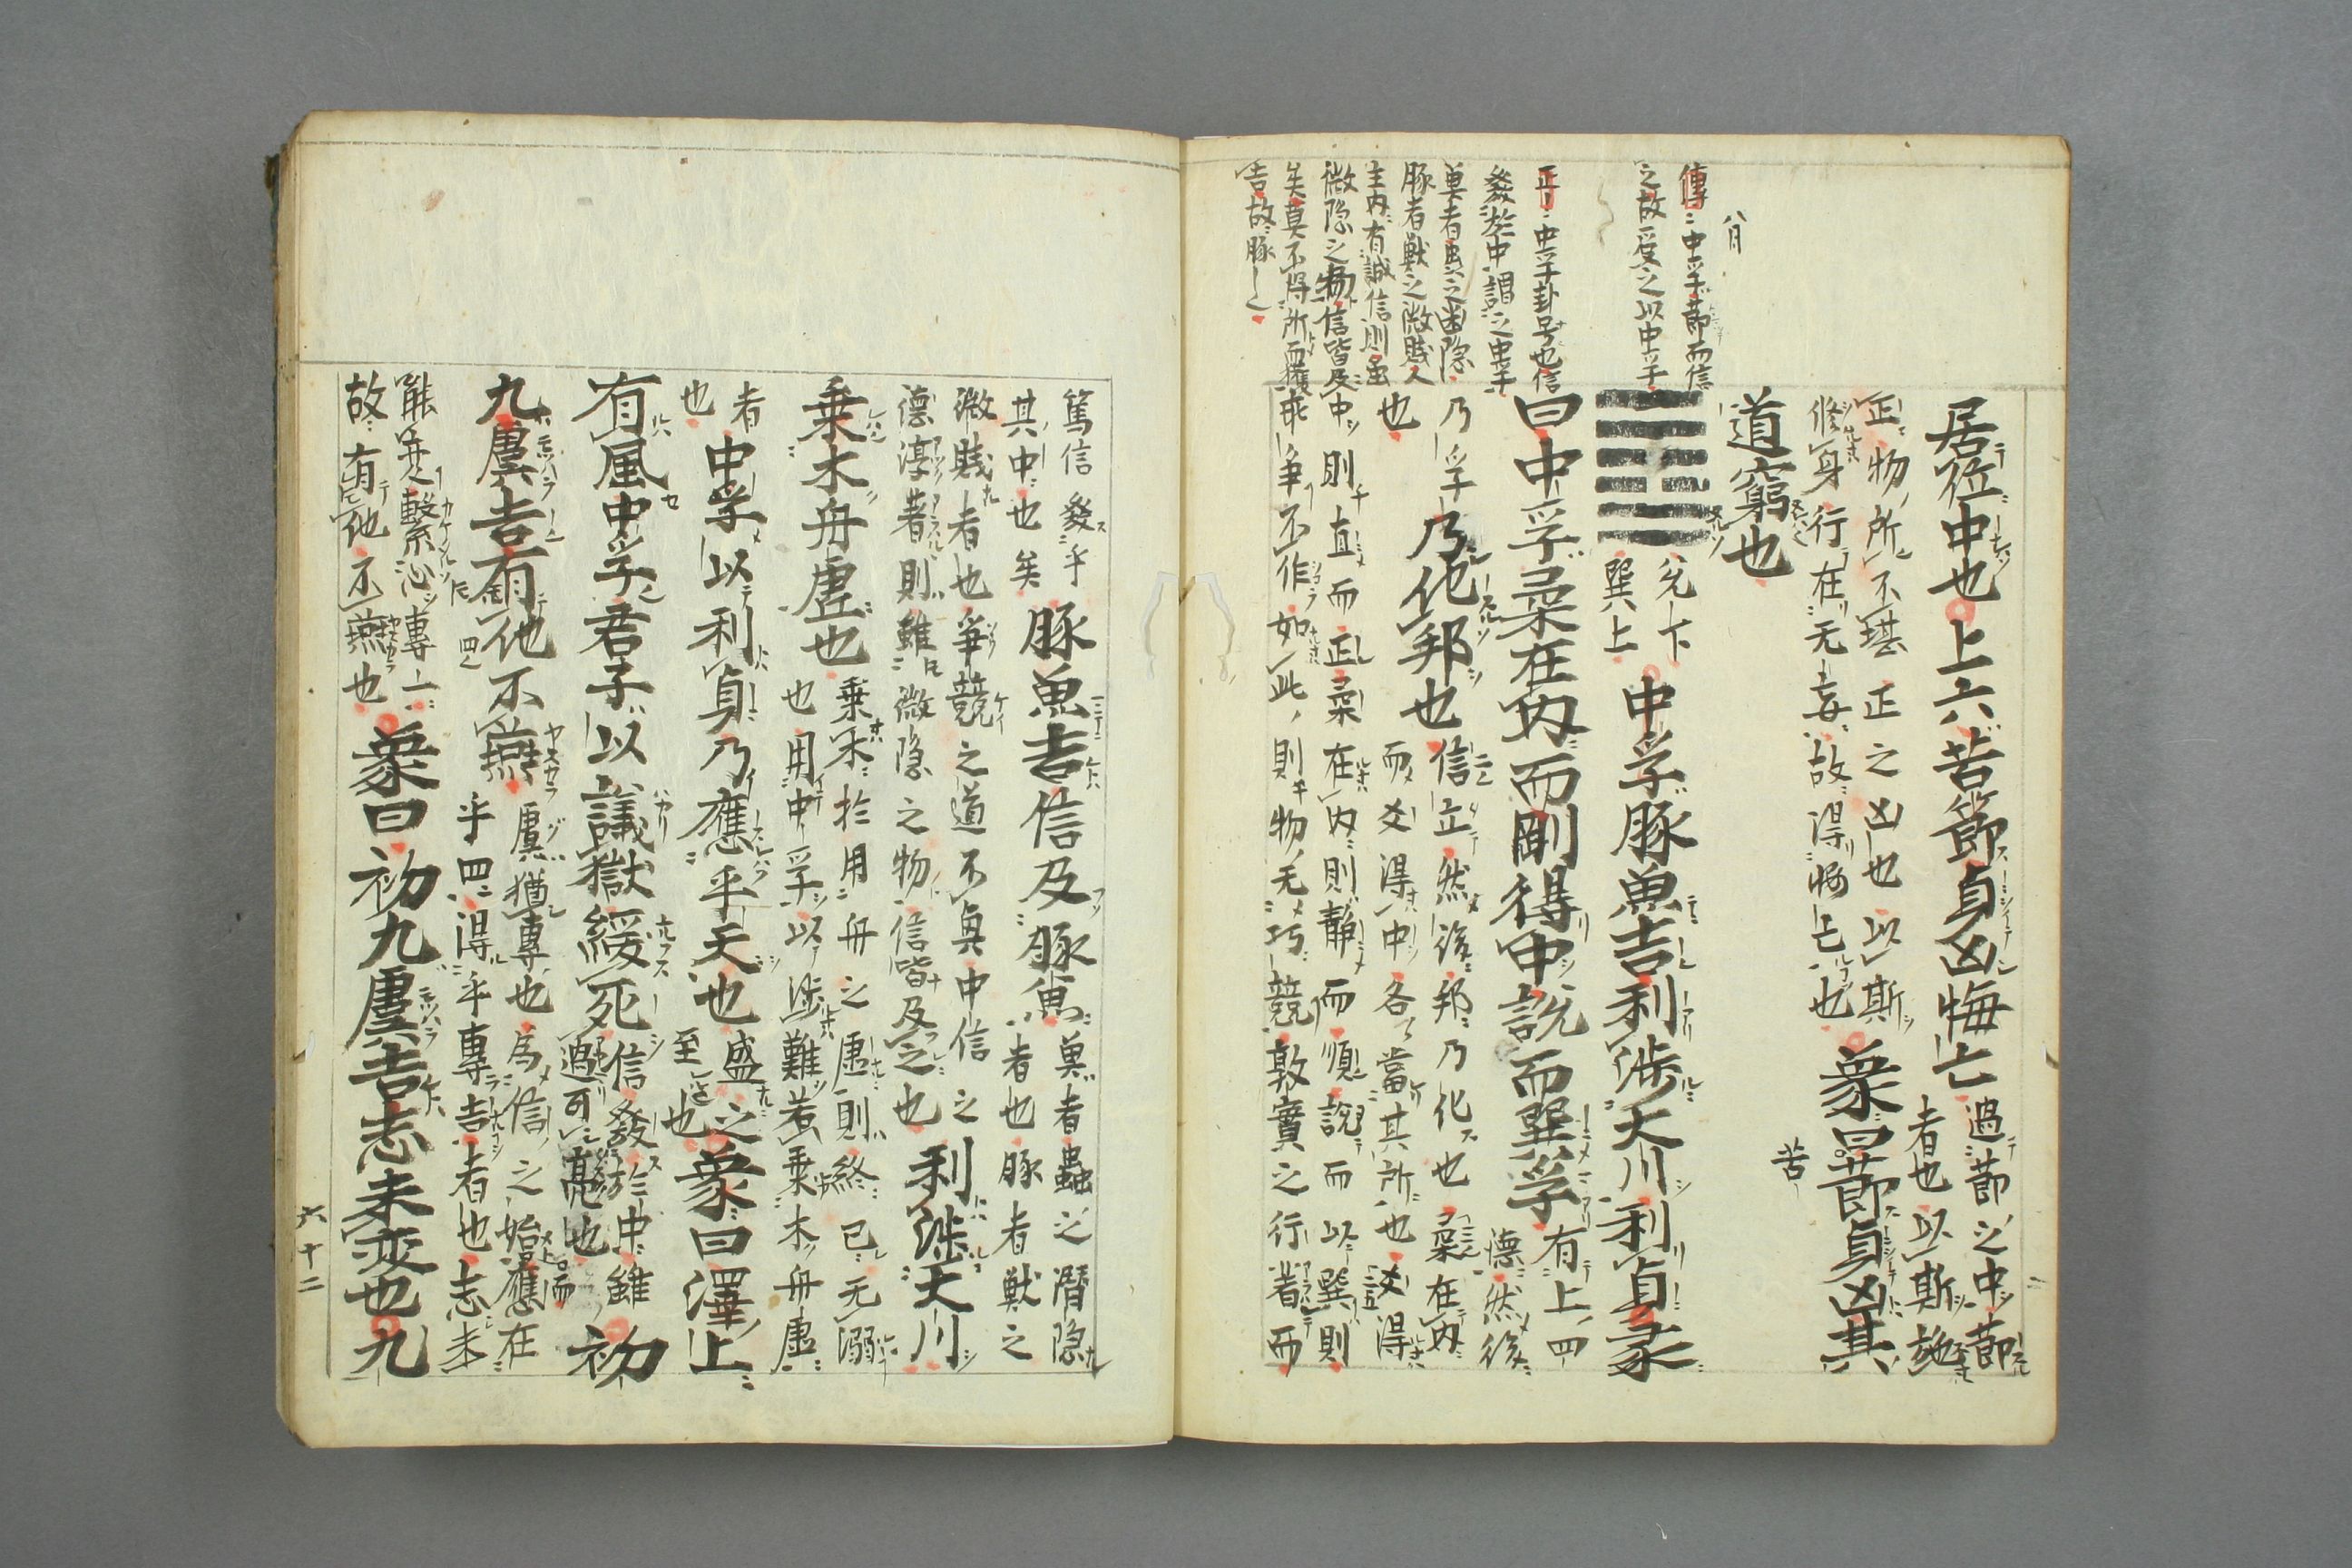 八月
傳中孚節而信
之故受之以中孚
正中孚卦号也信
發於中謂之中孚
魚者虫之幽隠
豚者獣之微賤人
主内有誠信則虽
微隠之物信皆及
矣莫不得所而獲
吉故豚〻
居位中也上六苦節貞凶悔亡
過節之中節
者也以斯施
正物所不堪正之凶也以斯
修身行在无妄故得悔亡也
象曰節貞凶其
苦
道窮也
兌下
巽上
中孚豚魚吉利渉大川利貞彖
曰中孚柔在内而剛得中説而巽孚
有上四
德然後
乃孚
乃化邦也
信立然後邦乃化也柔在内
也
而爻得中各〻當其所也爻得
中則直而正柔在内則静而順説而以巽則
乖争不作如此則物无巧競敦實之行着而
篤信發乎
其中也矣
豚魚吉信及豚魚
魚者蟲之潜隠
者也豚者獣之
微賤者也爭競之道不興中信之
德淳著則雖微隠之物信皆及之也
利渉大川
乗木舟虚也
乗木於用舟之虚則終已无溺
也用中孚以渉難若乗木舟虚
者
也
中孚以利貞乃應乎天也
盛之
至也
象曰澤上
有風中孚君子以議獄緩死
信發於中雖
過可亮也
初
九虞吉有他不燕
虞猶專也為信之始應在
乎四得乎專吉者也志未
而
四
能變繋心專一
故有他不燕也
象曰初九虞吉志未変也九
六十二